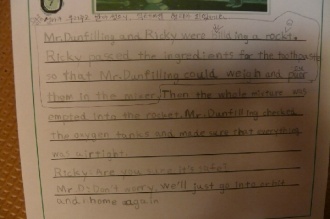 7
Mr. Dunfilling and Ricky were building a rocket.
Ricky passed the ingredients for the toothpaste
so that Mr. Dunfilling could weigh and pour
them in the mixer. Then the whole mixture was
emptied into the rocket. Mr. Dunfilling checked
the oxygen tanks and made sure that everything
was airtight.
Ricky: Are you sure it's safe?
Mr D: Don't worry, we'll just go into orbit
and home again